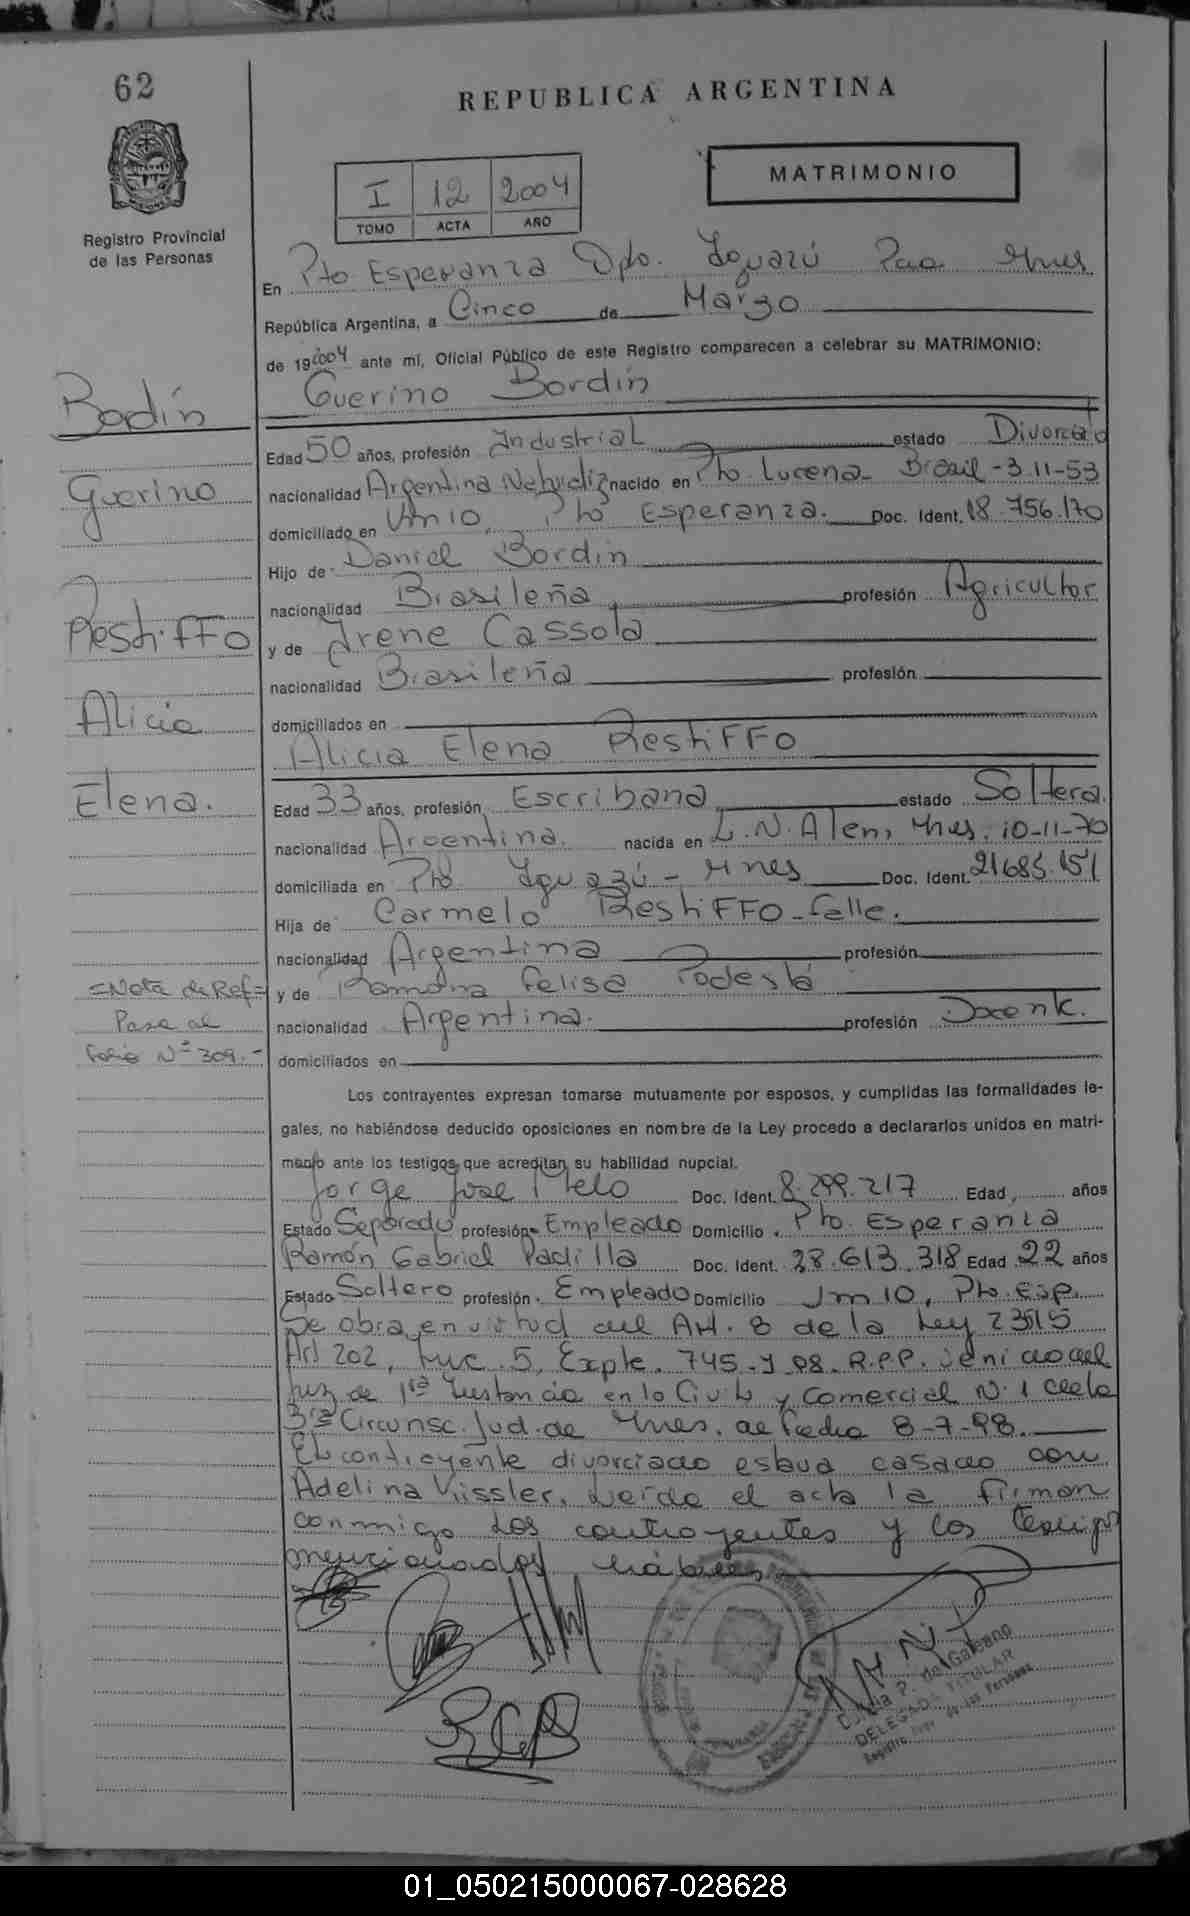 62
REPUBLICA ARGENTINA
MATRIMONIO
I 12 2004
TOMO ACTA AÑO
Registro Provincial
de las Personas
En Pto Esperanza Dpto. Iguazú Pcia Mnes
República Argentina, a Cinco de Marzo
de 19 2004 ante mí, Oficial Público de este Registro comparecen a celebrar su MATRIMONIO:
Guerino Bordin
Bodín
Guerino
Restiffo
Alicia
Elena.
Edad 50 años, profesión Industrial estado Divorciado
nacionalidad Argentina nacido en Pto. Lucena Brasil - 3-11-53
domiciliado en Pto Esperanza. Doc. Ident. 18.756.170
Hijo de Daniel Bordin
nacionalidad Brasileña profesión Agricultor
y de Irene Cassola
nacionalidad Brasileña profesión
domiciliados en
Alicia Elena Restiffo
Edad 33 años, profesión Escribana estado Soltera.
nacionalidad Argentina. nacida en L.N. Alem, Mnes. 10-11-70
domiciliada en Pto Iguazú - Mnes Doc. Ident. 21685.151
Hija de Carmelo Restiffo - falle.
nacionalidad Argentina profesión
y de Ramona Felisa Podestá
nacionalidad Argentina. profesión Docente.
domiciliados en
=Nota de Ref=
Pasa al
Folio Nº 309.-
Los contrayentes expresan tomarse mutuamente por esposos, y cumplidas las formalidades le-
gales, no habiéndose deducido oposiciones en nombre de la Ley procedo a declararlos unidos en matri-
monio ante los testigos que acreditan su habilidad nupcial.
Jorge José Melo Doc. Ident. 8.299.217 Edad años
Estado Separado profesión Empleado Domicilio Pto. Esperanza
Ramón Gabriel Padilla Doc. Ident. 28.613.318 Edad 22 años
Estado Soltero profesión Empleado Domicilio Km 10, Pto. Esp.
Se obra en virtud del Art. 8 de la Ley 23515
Art 202, Inc. 5, Expte. 745-
Juz de 1ra Instancia en lo Civil y Comercial Nº 1 de la
3ra Circunsc. Jud. de Mnes. de fecha 8-7-98.
El contrayente divorciado estava casado con
Adelina Kissler. Leída el acta la firman
conmigo los contrayentes y los testigos
mencionados hábiles
P. de Galeano
DELEGADA TITULAR
01_050215000067-028628